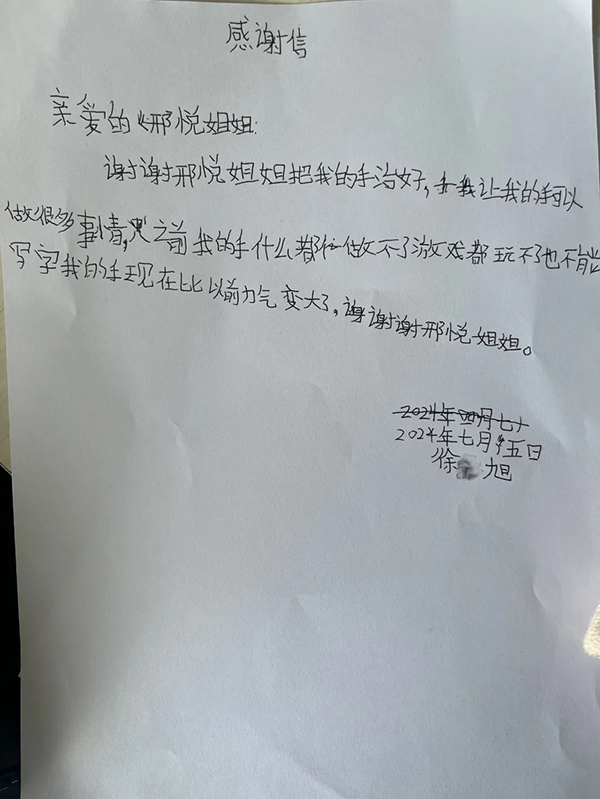 感谢信
亲爱的邢悦姐姐:
谢谢邢悦姐姐把我的手治好,让我的手可以
做很多事情,之前我的手什么都做不了游戏都玩不了也不能
写字我的手现在比以前力气变大了,谢谢谢邢悦姐姐。
2024年四月七
2024年七月5五日
徐 旭